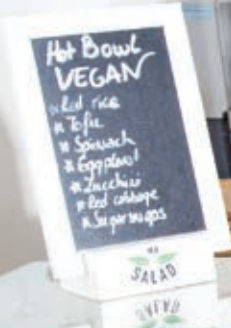 Hot Bowl
VEGAN
* Red rice
* Tofu
* Spinach
* Eggplant
* Zucchini
* Red cabbage
* Sugar snaps
SALAD